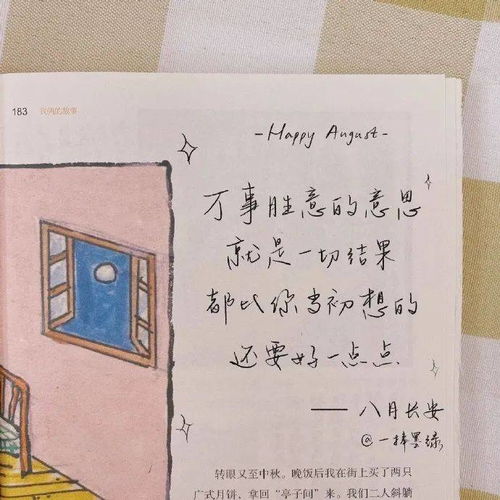 183 我俩的故事
-Happy August-
万事胜意的意思
就是一切结果
都比你当初想的
还要好一点点
—— 八月长安
@一捧墨绿
转眼又至中秋。晚饭后我在街上买了两只
广式月饼，拿回“亭子间”来。我们二人斜躺